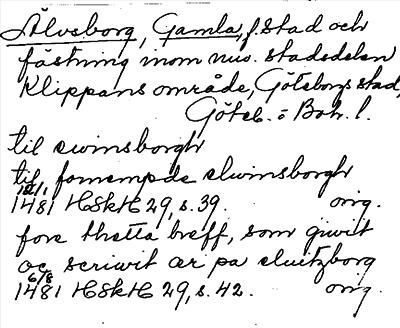 Älvsborg, Gamla, f. stad och
fästning inom nuv. stadsdelen
Klippans område, Göteborgs stad,
Göteb. o Boh. l.
til ewinsborgh
til fornempde elwinsborgh
12/1
1481 HSkH 29, s. 39. orig.
fore thetta breff, som giwit
oc scriwit ær pa eluitzborg
6/8
1481 HSkH 29, s. 42. orig.